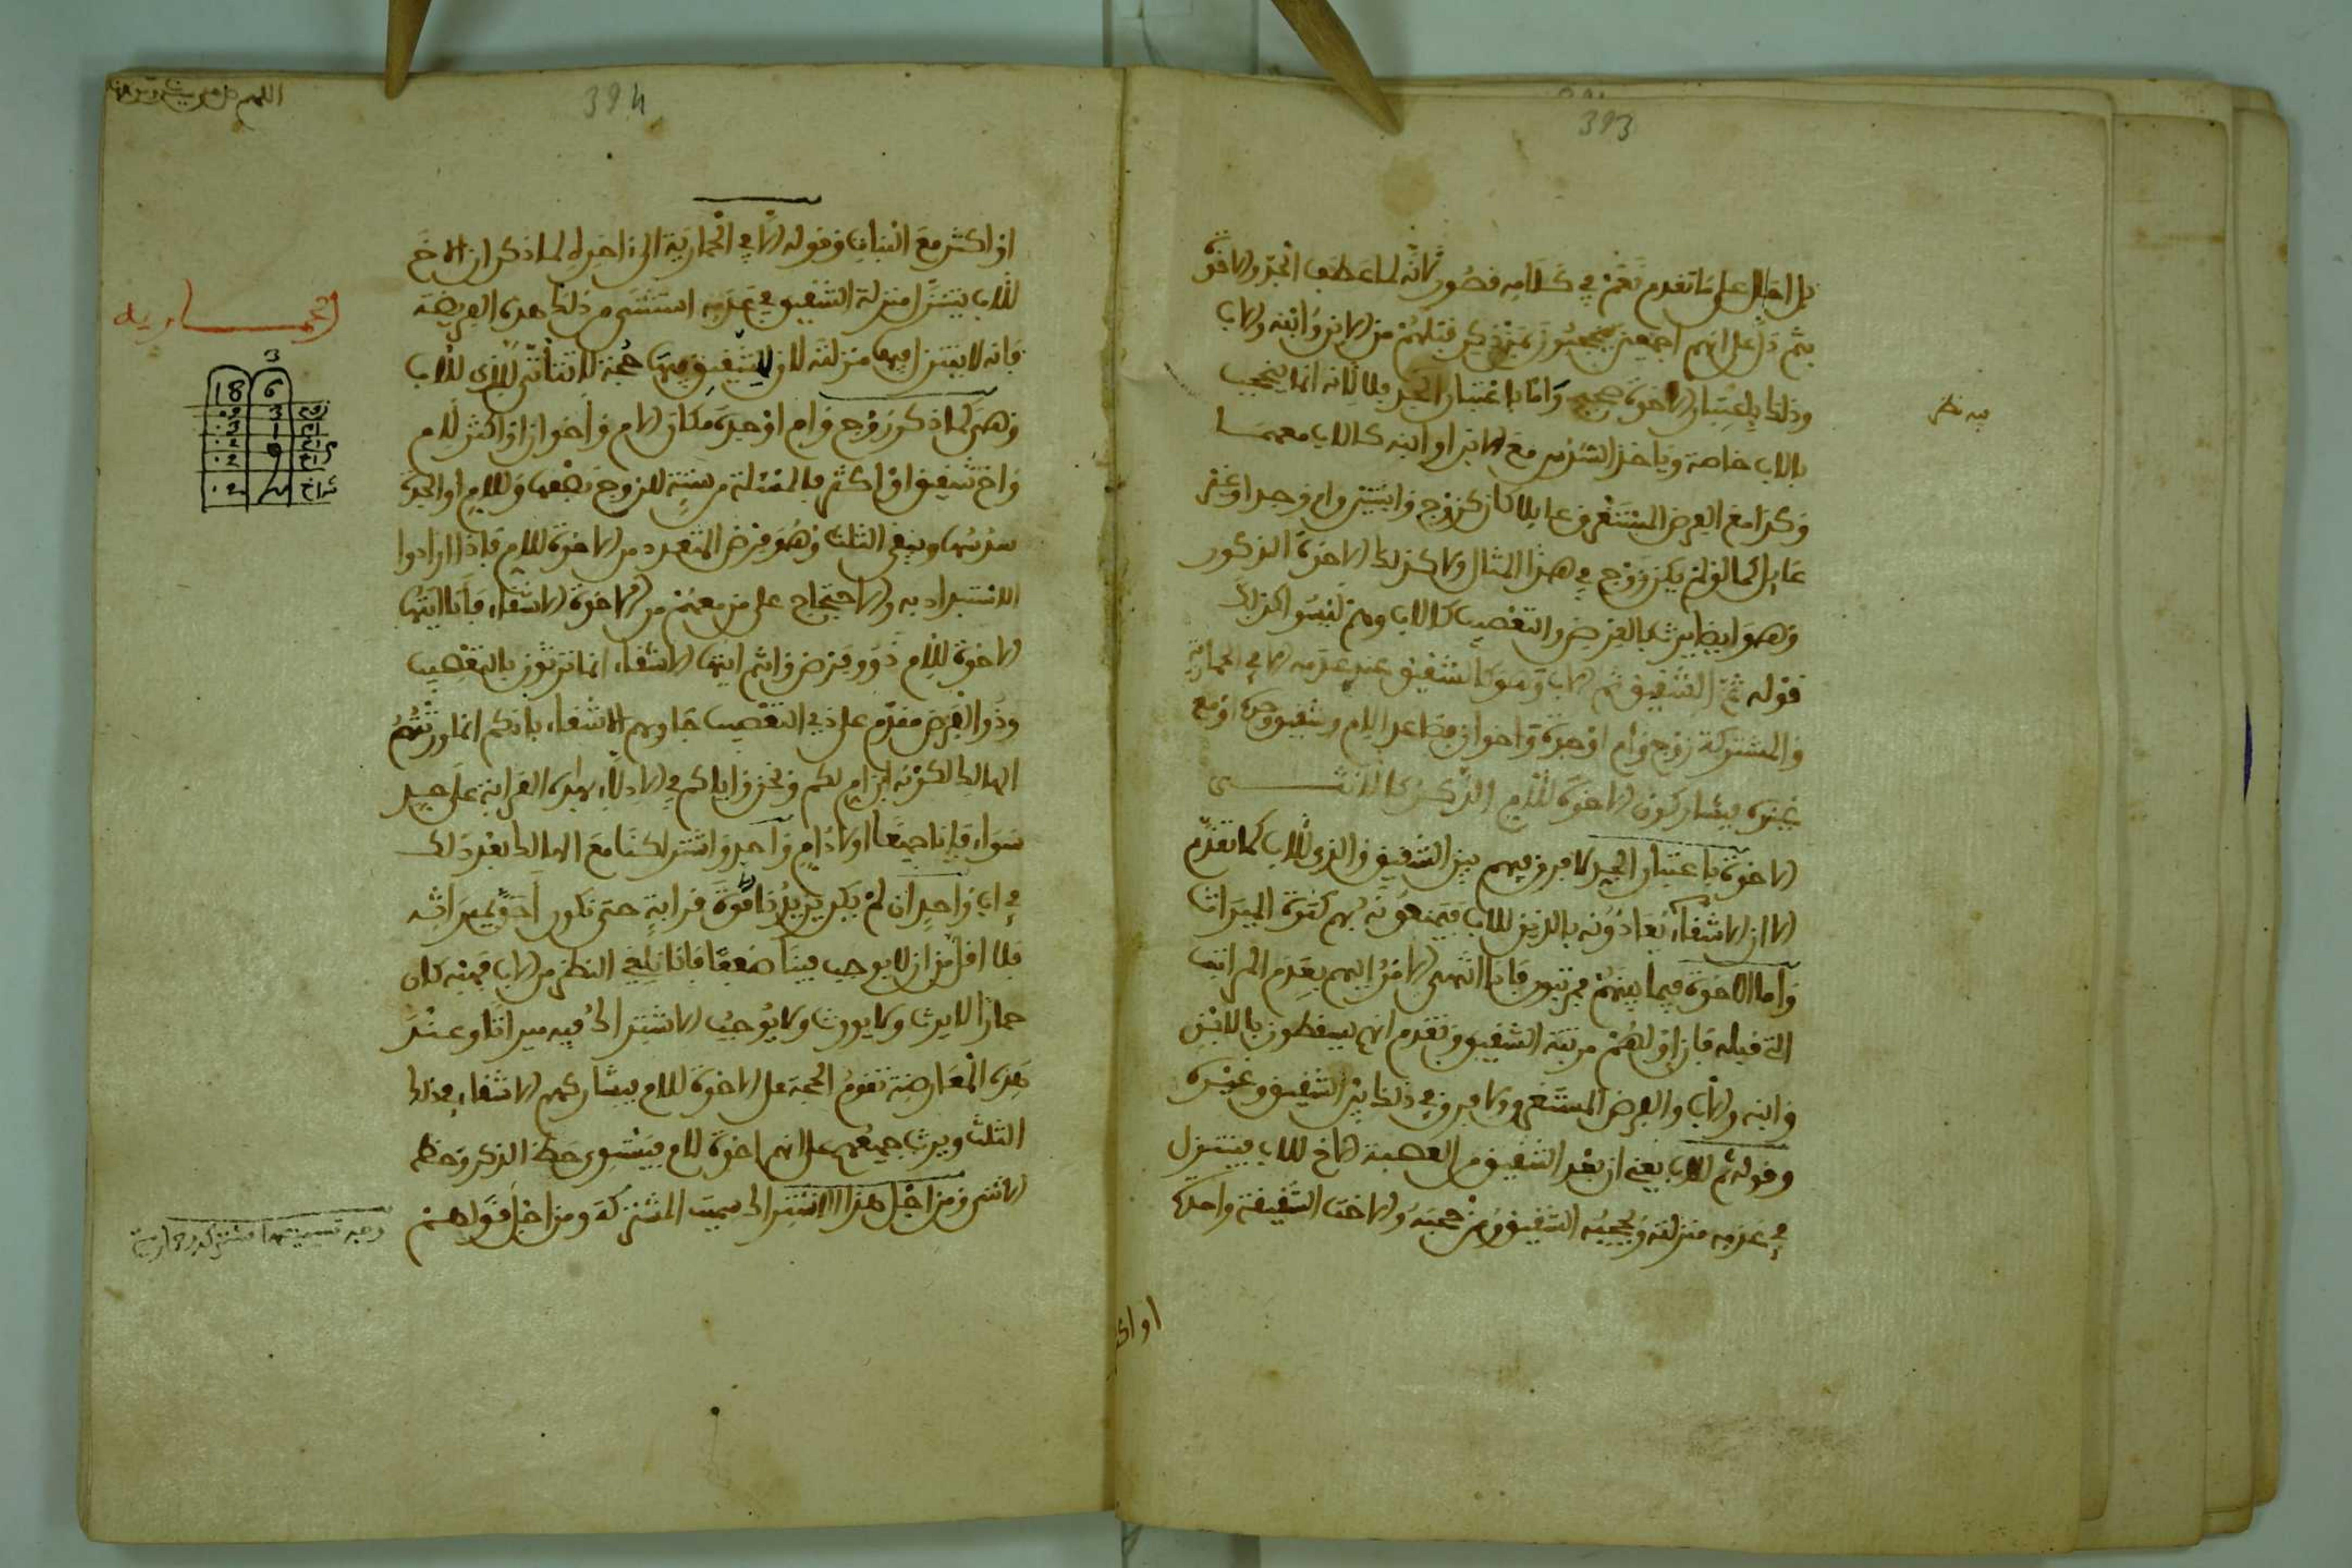 393
بل احال على ما تقدم نعم في كلامه قصور لانه لما عطف الجد والاخوة
بثم دل على انهم اجمعين يحجبون بمن ذكر قبلهم من الابن وابنه والاب
وذلك باعتبار الاخوة صحيح واما باعتبار الجد فلا لانه انما يحجب
فيه نظر
بالاب خاصة وياخذ السدس مع الابن او ابنه كالاب معهما
وكذا مع الفرض المستغرق عايلا كان كزوج وابنتين وام وجد او غير
عايل كما لو لم يكن زوج في هذا المثال ولا كذلك الاخوة الذكور
وهو ايضا يرث بالفرض والتعصيب كالاب وهم ليسوا كذلك
قوله ثم الشقيق ثم للاب وهو كالشقيق عند عدمه الا في الحمارية
والمشتركة زوج وام او جدة واخوان فصاعدا لام وشقيق وحده او مع
غيره فيشاركون الاخوة للام الذكر كالانثى
الاخوة باعتبار الجد لا فرق فيهم بين الشقيق والذي للاب كما تقدم
الا ان الاشقاء يعادونه بالذين للاب فيمنعونه بهم كثرة الميراث
واما الاخوة فيما بينهم مرتبون فاذا انتهى الامر اليهم بعدم المراتب
التي قبله فان اولهم مرتبة الشقيق وتقدم انهم يسقطون بالابن
وابنه والاب والفرض المستغرق ولا فرق في ذلك بين الشقيق وغيره
وقوله ثم للاب يعني ان بعد الشقيق من العصبة الاخ للاب فيتنزل
في عدمه منزلته ويحجبه الشقيق ومن حجبه والاخت الشقيقة واحدة
او اكثر
394
او اكثر مع البنات وقوله الا في الحمارية الى اخره لما ذكر ان الاخ
للاب يتنزل منزلة الشقيق في عدمه استثنى من ذلك هذه الفريضة
الحمارية
فانه لا يتنزل فيها منزلته لان للشقيق فيها حجة لا تتاتى للذي للاب
3
18 6
وهي كما ذكر زوج وام او جدة مكان الام واخوان او اكثر لام
واخ شقيق او اكثر فالمسئلة من ستة للزوج نصفها وللام او الجدة
سدسها ويبقى الثلث وهو فرض المتعدد من الاخوة للام فاذا ارادوا
الاستبداد به والاحتجاج على من معهم من الاخوة الاشقاء فانا ايتها
الاخوة للام ذوو فرض وانتم ايها الاشقاء انما ترثون بالتعصيب
وذو الفرض مقدم على ذي التعصيب جاوبهم الاشقاء بانكم انما ورثتم
الهالك لكونه ابن ام لكم ونحن واياكم في الادلاء بهذه القرابة على حد
سواء فانا جميعا اولاد ام واحد واشتراكنا مع الهالك بعد ذلك
في اب واحد ان لم يكن يزيدنا قوة قرابة حتى نكون احق بميراثه
فلا اقل من ان لا يوجب فينا ضعفا فانا نلغي النظر من الاب فهبه كان
حمارا لا يرث ولا يورث ولا يوجب الاشتراك فيه ميراثا وعند
هذه المعارضة تقوم الحجة على الاخوة للام فيشاركهم الاشقاء في ذلك
الثلث ويرث جميعهم على انهم اخوة لام فيستوي حظ الذكر وحظ
الانثى ومن اجل هذا الاشتراك سميت المشتركة ومن اجل قولهم
وجه تسميتها مشتركة وحمارية